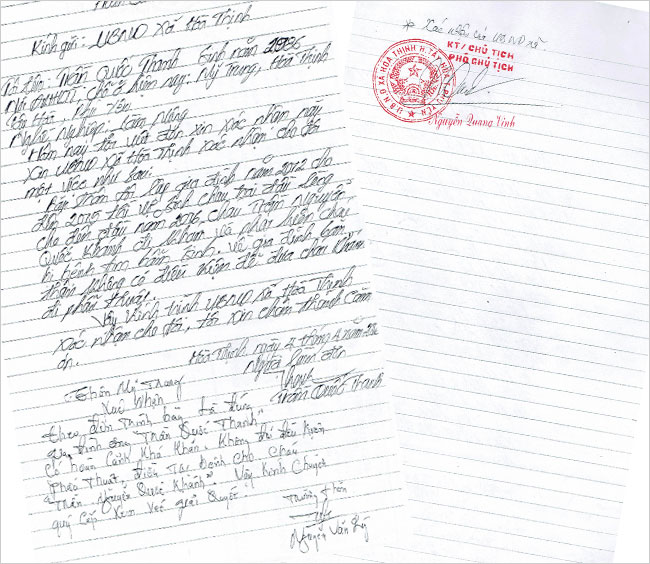 Kính gửi: UBND xã Hoà Thịnh
Tôi tên: Trần Quốc Thanh Sinh năm 1986
Nơi ĐKHKTT, chỗ ở hiện nay: Mỹ Trung, Hoà Thịnh
Tây Hoà, Phú Yên
Nghề nghiệp: Làm nông
Hôm nay tôi viết đơn xin xác nhận này
xin UBND xã Hoà Thịnh xác nhận cho tôi
một việc như sau:
Bản thân tôi lập gia đình năm 2012 cho
đến 2015 tôi vợ sinh cháu trai đầu lòng
cho đến đầu năm 2016 cháu Trần Nguyễn
Quốc Khánh đi khám và phát hiện cháu
bị bệnh tim bẩm sinh. Vì gia đình bần
không có điều kiện để đưa cháu Khánh
đi phẫu thuật.
Vậy kính trình UBND xã Hoà Thịnh
xác nhận cho tôi, tôi xin chân thành cảm
ơn.
Hoà Thịnh, ngày 4 tháng 4 năm
Người làm đơn
Thanh
Trần Quốc Thanh
Thôn Mỹ Trung
Xác Nhận
theo đơn trình bày là đúng
gia đình ông "Trần Quốc Thanh"
có hoàn cảnh khó khăn. Không đủ điều kiện
phẫu thuật, điều trị bệnh cho cháu
"Trần Nguyễn Quốc Khánh". Vậy kính chuyển
quý cấp xem xét giải quyết.
Trưởng thôn
Nguyễn Văn
* Xác nhận của UBND xã
KT/ CHỦ TỊCH
PHÓ CHỦ TỊCH
U.B.N.D XÃ HOÀ THỊNH H. TÂY HOÀ T. PHÚ YÊN
Nguyễn Quang Vinh